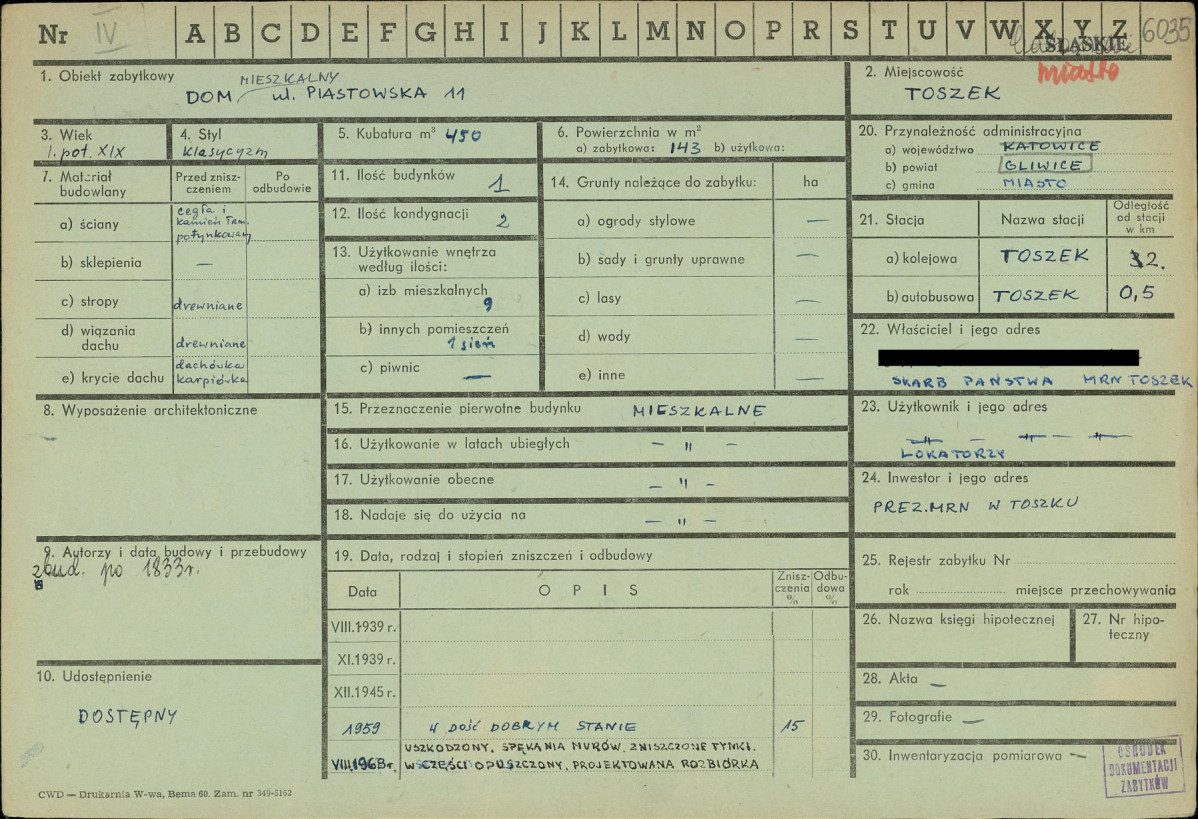 Nr IV A B C D E F G H I J K L M N O P R S T U V W X Y Z 6035
ŚLĄSKIE
miasto
1. Obiekt zabytkowy
DOM MIESZKALNY ul. PIASTOWSKA 11
2. Miejscowość
TOSZEK
3. Wiek
I. pot. XIX
4. Styl
klasycyzm
5. Kubatura m³ 450
6. Powierzchnia w m²
a) zabytkowa: 143 b) użytkowa:
20. Przynależność administracyjna
a) województwo KATOWICE
b) powiat GLIWICE
c) gmina MIASTO
7. Materiał budowlany
Przed znisz-
czeniem
Po
odbudowie
a) ściany
cegła i
kamień łam.
potynkowany
b) sklepienia —
c) stropy drewniane
d) wiązania
dachu drewniane
e) krycie dachu dachówka
karpiówka
11. Ilość budynków 1
12. Ilość kondygnacji 2
13. Użytkowanie wnętrza
według ilości:
a) izb mieszkalnych
9
b) innych pomieszczeń
1 sień
c) piwnic —
14. Grunty należące do zabytku: ha
a) ogrody stylowe —
b) sady i grunty uprawne —
c) lasy —
d) wody —
e) inne —
21. Stacja Nazwa stacji Odległość
od stacji
w km
a) kolejowa TOSZEK 2.
b) autobusowa TOSZEK 0,5
22. Właściciel i jego adres
SKARB PAŃSTWA MRN TOSZEK
8. Wyposażenie architektoniczne
—
15. Przeznaczenie pierwotne budynku MIESZKALNE
16. Użytkowanie w latach ubiegłych — " —
17. Użytkowanie obecne — " —
18. Nadaje się do użycia na — " —
23. Użytkownik i jego adres
—"— — —"— —"—
LOKATORZY
24. Inwestor i jego adres
PREZ.MRN W TOSZKU
9. Autorzy i data budowy i przebudowy
zbud. po 1833r.
19. Data, rodzaj i stopień zniszczeń i odbudowy
Data OPIS Znisz-
czenia
% Odbu-
dowa
%
VIII.1939 r.
XI.1939 r.
XII.1945 r.
1959 W DOŚĆ DOBRYM STANIE 15
VIII.1968r. USZKODZONY. SPĘKANIA MURÓW. ZNISZCZONE TYNKI.
W CZĘŚCI OPUSZCZONY. PROJEKTOWANA ROZBIÓRKA
25. Rejestr zabytku Nr
rok miejsce przechowywania
26. Nazwa księgi hipotecznej
27. Nr hipo-
teczny
10. Udostępnienie
DOSTĘPNY
28. Akta —
29. Fotografie —
30. Inwentaryzacja pomiarowa —
OŚRODEK
DOKUMENTACJI
ZABYTKÓW
CWD — Drukarnia W-wa, Bema 60. Zam. nr 349-5162